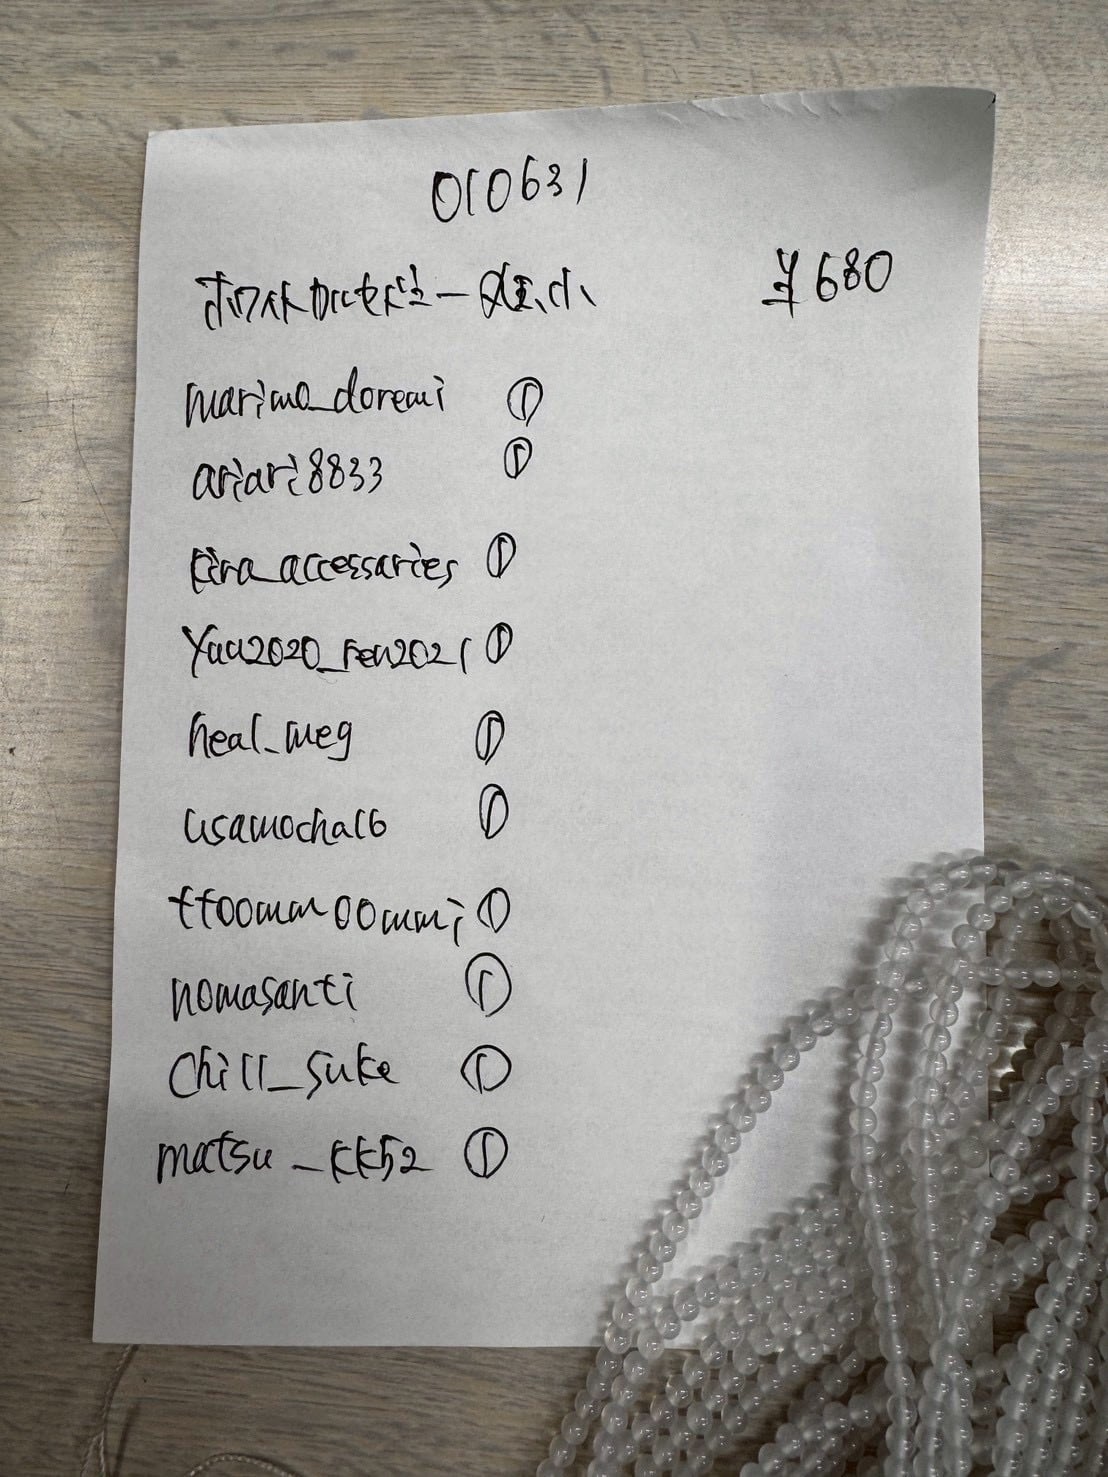 010631
ホワイトカルセドニー 丸玉 小 ¥680
marimo_doremi ①
ariari8833 ①
kira_accessaries ①
Yuu2020_ren2021 ①
heal_meg ①
usamocha16 ①
ttoommoommi ①
nomasanti ①
Chill_suke ①
matsu_kk52 ①